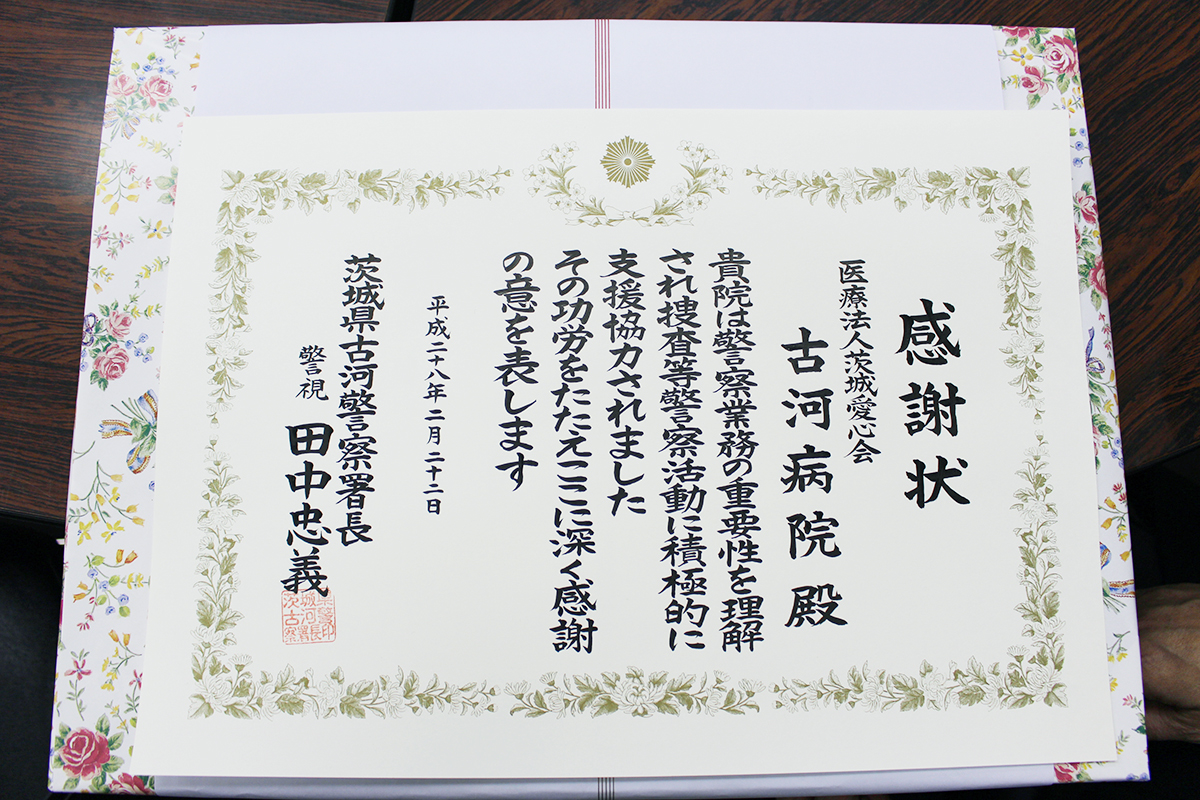 感謝状
医療法人茨城愛心会
古河病院殿
貴院は警察業務の重要性を理解
され捜査等警察活動に積極的に
支援協力されました
その功労をたたえここに深く感謝
の意を表します
平成二十八年二月二十二日
茨城県古河警察署長
警視 田中忠義